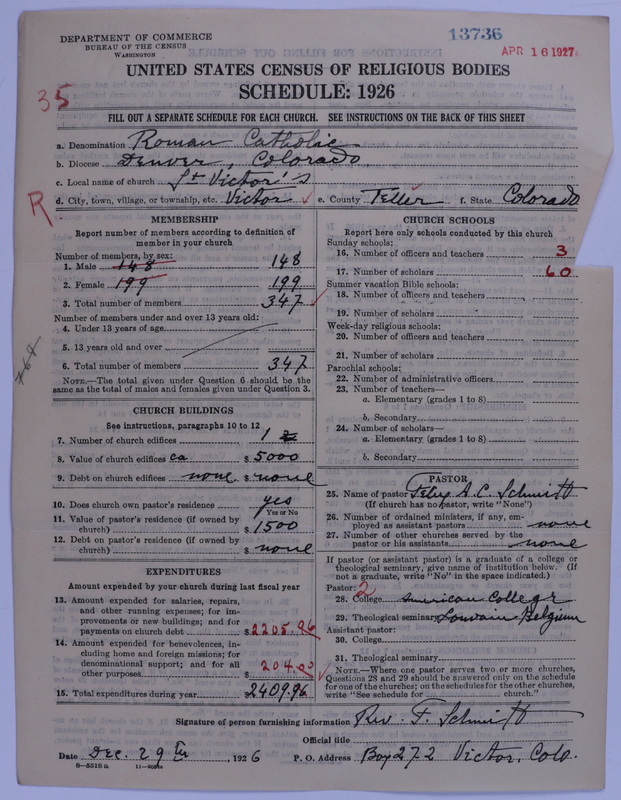 DEPARTMENT OF COMMERCE
BUREAU OF THE CENSUS
WASHINGTON
13736
APR 16 1927
UNITED STATES CENSUS OF RELIGIOUS BODIES
SCHEDULE: 1926
35
FILL OUT A SEPARATE SCHEDULE FOR EACH CHURCH. SEE INSTRUCTIONS ON THE BACK OF THIS SHEET
a. Denomination Roman Catholic
b. Diocese Denver, Colorado
c. Local name of church St Victor's
R
d. City, town, village, or township, etc. Victor e. County Teller f. State Colorado
MEMBERSHIP
Report number of members according to definition of
member in your church
Number of members, by sex:
1. Male 148 148
2. Female 199 199
3. Total number of members 347
Number of members under and over 13 years old:
4. Under 13 years of age
5. 13 years old and over
6. Total number of members 347
NOTE.—The total given under Question 6 should be the
same as the total of males and females given under Question 3.
CHURCH BUILDINGS
See instructions, paragraphs 10 to 12
7. Number of church edifices 1
8. Value of church edifices ca $ 5000
9. Debt on church edifices none $ none
10. Does church own pastor's residence yes
Yes or No
11. Value of pastor's residence (if owned by
church) $ 1500
12. Debt on pastor's residence (if owned by
church) $ none
EXPENDITURES
Amount expended by your church during last fiscal year
13. Amount expended for salaries, repairs,
and other running expenses; for im-
provements or new buildings; and for
payments on church debt $ 2205.96
14. Amount expended for benevolences, in-
cluding home and foreign missions; for
denominational support; and for all
other purposes $ 204.00
15. Total expenditures during year $ 2409.96
CHURCH SCHOOLS
Report here only schools conducted by this church
Sunday schools:
16. Number of officers and teachers 3
17. Number of scholars 60
Summer vacation Bible schools:
18. Number of officers and teachers
19. Number of scholars
Week-day religious schools:
20. Number of officers and teachers
21. Number of scholars
Parochial schools:
22. Number of administrative officers
23. Number of teachers—
a. Elementary (grades 1 to 8)
b. Secondary
24. Number of scholars—
a. Elementary (grades 1 to 8)
b. Secondary
PASTOR
25. Name of pastor Felix A.C. Schmitt
(If church has no pastor, write "None")
26. Number of ordained ministers, if any, em-
ployed as assistant pastors none
27. Number of other churches served by the
pastor or his assistants none
If pastor (or assistant pastor) is a graduate of a college or
theological seminary, give name of institution below. (If
not a graduate, write "No" in the space indicated.)
Pastor: 2
28. College American College
29. Theological seminary Louvain Belgium
Assistant pastor:
30. College
31. Theological seminary
NOTE.—Where one pastor serves two or more churches,
Questions 28 and 29 should be answered only on the schedule
for one of the churches; on the schedules for the other churches,
write "See schedule for church."
Signature of person furnishing information Rev. F. Schmitt
Official title
Date Dec. 29th, 1926 P. O. Address Box 272 Victor, Colo.
8—5518 a